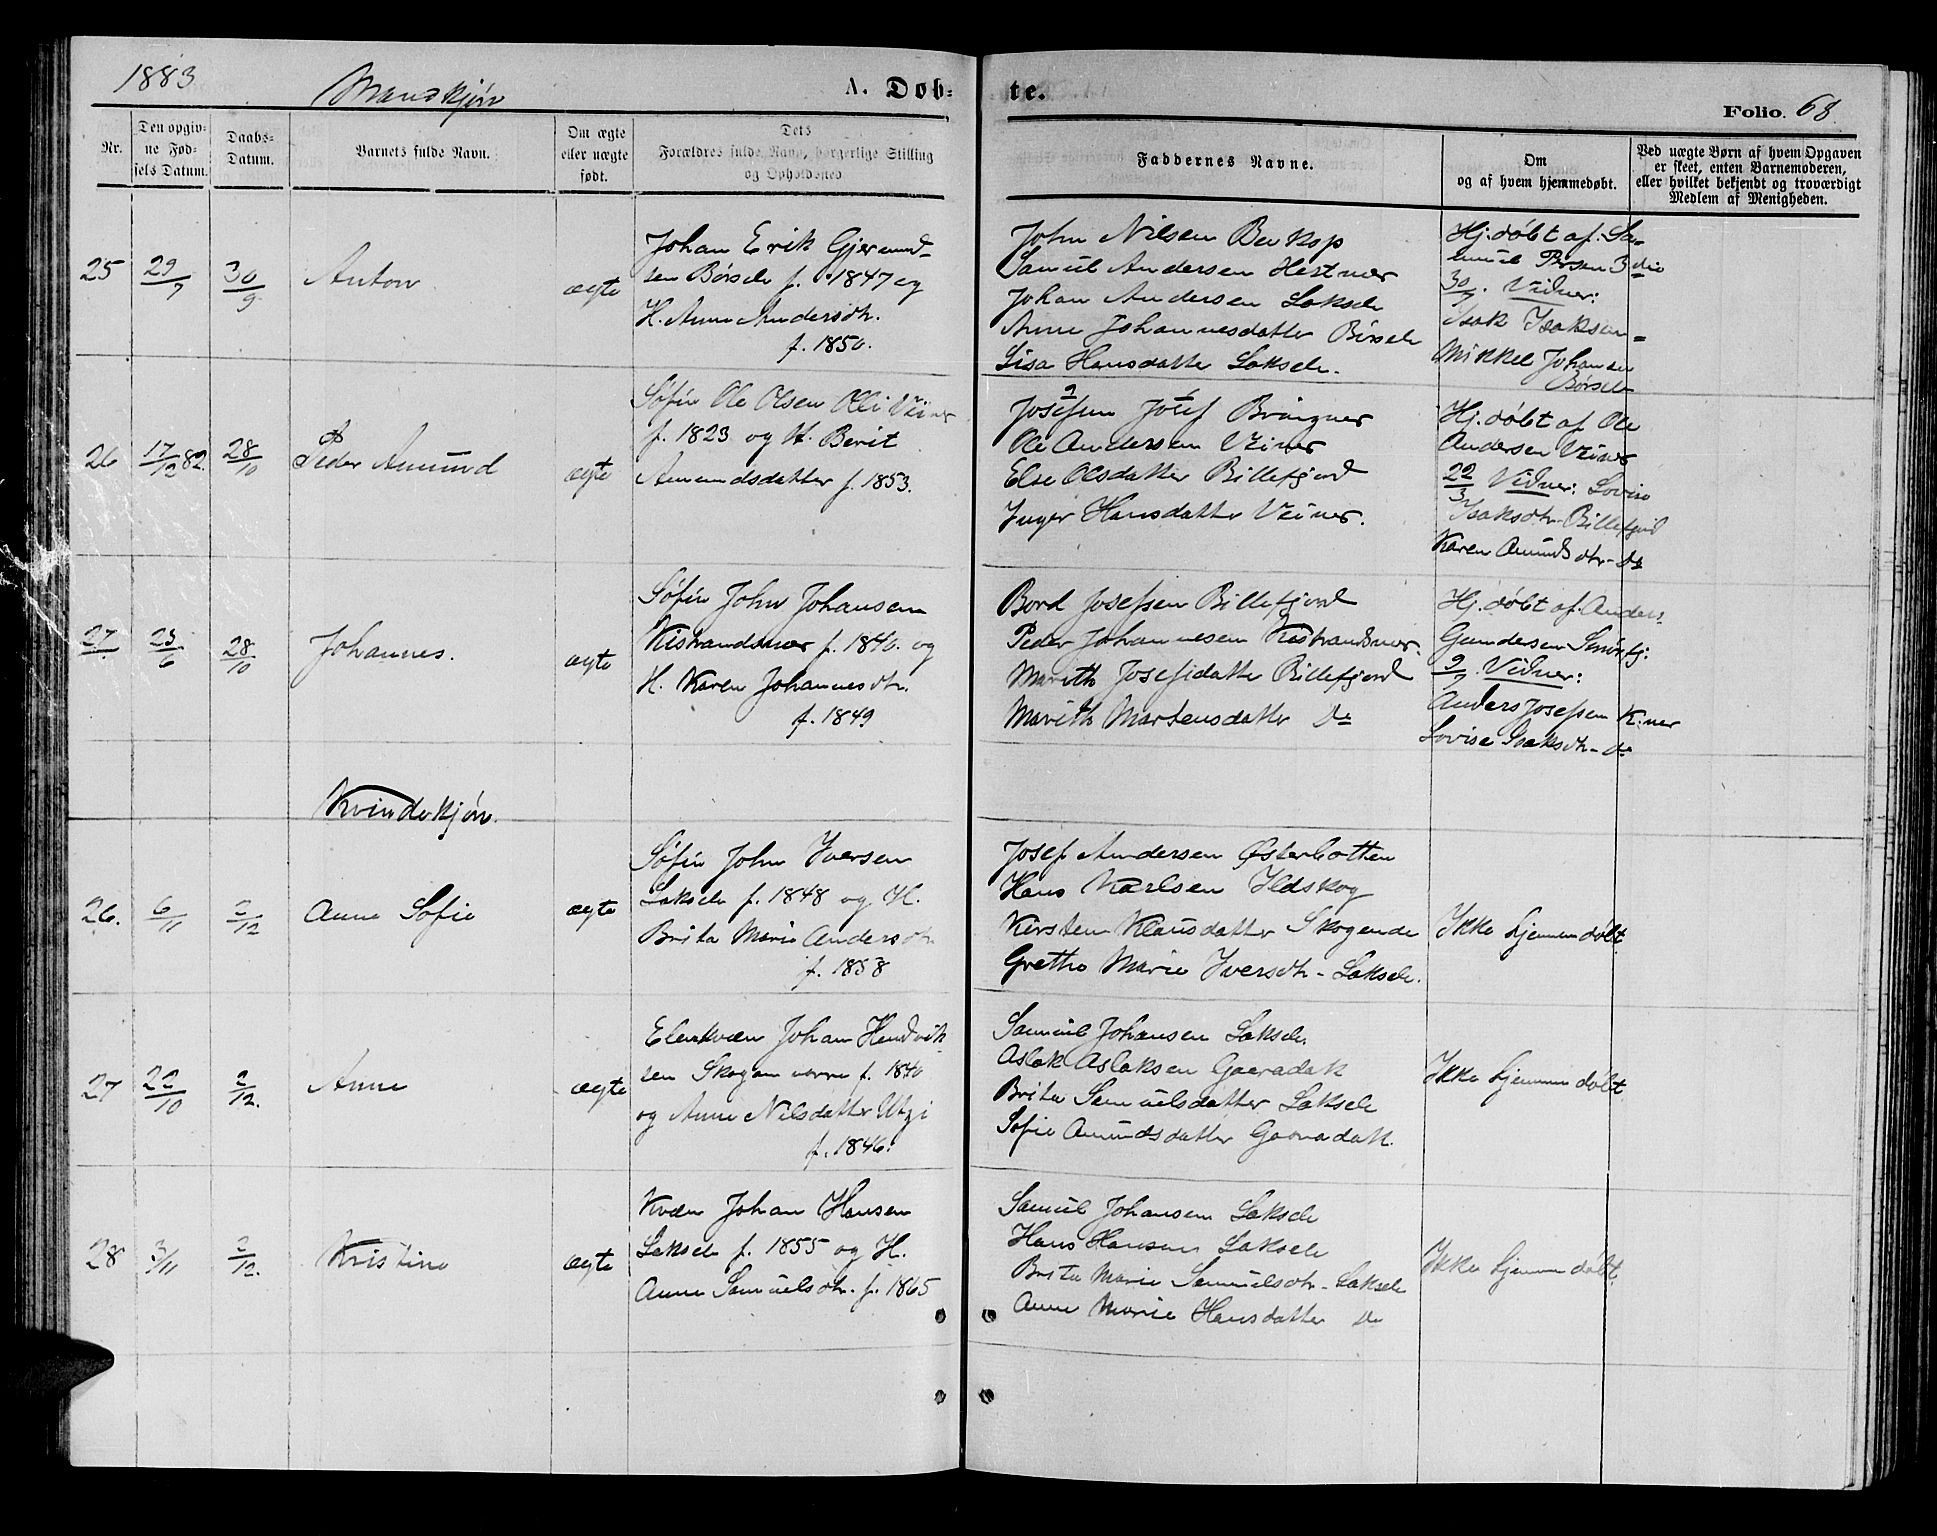 1883
Mandkjøn
A. Døb-
te.
Folio. 68.
Nr.
Den opgiv-
ne Fød-
sels Datum.
Daabs-
Datum.
Barnets fulde Navn.
Om ægte
eller uægte
født.
Dets
Forældres fulde Navn, borgerlige Stilling
og Opholdssted
Faddernes Navne.
Om
og af hvem hjemmedøbt.
Ved uægte Børn af hvem Opgaven
er skeet, enten Barnemoderen,
eller hvilket bekjendt og troværdigt
Medlem af Menigheden.
25
29/7
30/9
Anton
ægte
Johan Erik Gjermund-
sen Børsele f. 1847 og
H. Anne Andersdtr.
f. 1850.
John Nilsen Beskop
Samuel Andersen Hestnær
Johan Andersen Laksele
Anne Johannesdatter Børsele
Lisa Hansdatter Laksele.
Hj. døbt af Sa-
muel Persen
30/7. Vidner:
Isak Isaksen
Mikkel Johansen
Børsele
26
17/12 82.
28/10
Peder Amund
ægte
Søfin Ole Olsen Olli Veines
f. 1823 og H. Berit
Amundsdatter f. 1853.
Josefsen Josef Bringnes
Ole Andersen Veines
Else Olsdatter Billefjord
Inger Hansdatter Veines.
Hj. døbt af Ole
Andersen Veines
22/3 Vidner: Lovise
Isaksdtr. Billefjord
Karen Amundsdtr. Do
27
23/6
28/10
Johannes.
ægte
Søfin John Johansen
Kistrandsnær f. 1840. og
H. Karen Johannesdtr.
f. 1849
Bord Josefsen Billefjord
Peder Johannesen Kistrandsnær.
Marith Josefsdatter Billefjord
Marith Martensdatter Do
Hj. døbt af. Anders
Gundersen Smørfj:
9/7. Vidner:
Anders Josefsen K:nær
Lovise Isaksdtr. Do
Kvindekjøn.
26.
6/11
2/12
Anne Sofie
ægte
Søfin John Iversen
Laksele f. 1848 og H.
Brita Marie Andersdtr.
f. 1858
Josef Andersen Østerbotten
Hans Karlsen Ildskog
Kirsten Klausdatter Skogende
Grethe Marie Iversdtr. Laksele.
Ikke hjemmedøbt
27
22/10
2/12.
Anne
ægte
Elvekvæn Johan Hendrik-
sen Skoganvarre f. 1840
og Anne Nilsdatter Utzi
f. 1846.
Samuel Johansen Laksele.
Aslak Aslaksen Gavradak
Brita Samuelsdatter Laksele
Sofie Amundsdatter Gavradak.
Ikke hjemmedøbt
28
3/11
2/12.
Kristine
ægte
Kvæn Johan Hansen
Laksele f. 1855 og H.
Anne Samuelsdtr. f. 1865
Samuel Johansen Laksele
Hans Hansen Laksele
Brita Marie Samuelsdtr. Laksele
Anne Marie Hansdatter Do
Ikke hjemmedøbt.